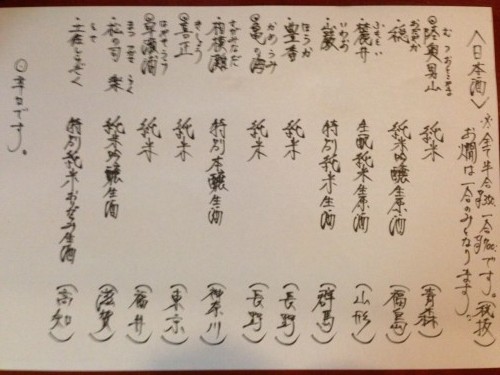 〈日本酒〉
お燗は一合のみとなります。
むつおとこやま
◎陸奥男山 純米 (青森)
おだやか
・穏 純米吟醸生原酒 (福島)
ふもとい
・麓井 生酛純米生原酒 (山形)
いわお
・巌 特別純米生酒 (群馬)
ほうか
・豊香 純米 (長野)
かめ うみ
◎亀の海 純米 (長野)
さがみなだ
・相模灘 特別本醸生酒 (神奈川)
きしょう
◎喜正 純米 (東京)
はやせうら
◎早瀬浦 純米 (福井)
まつ つかさ らく
・松の司 楽 純米吟醸生酒 (滋賀)
・土佐しらぎく 特別純米おりがらみ生酒 (高知)
◎辛口です。